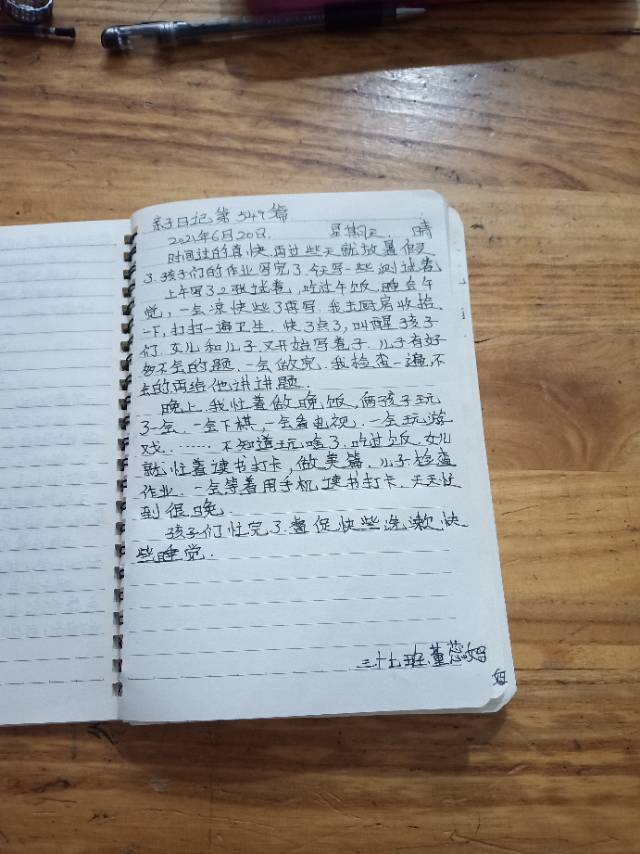 亲子日记第549篇
2021年6月20日. 星期天. 晴
时间过的真快.再过些天就放暑假
了.孩子们的作业写完了.今天写一些测试卷
上午写了2张试卷，吃过午饭.睡会午
觉，一会凉快些了再写.我去厨房收拾
一下，打扫一遍卫生.快了点了，叫醒孩子
们.女儿和儿子又开始写卷子.儿子有好
多不会的题.一会做完.我检查一遍,不
会的再给他讲讲题.
晚上.我忙着做晚饭,俩孩子玩
了一会.一会下棋,一会看电视.一会玩游
戏.……不知道玩啥了.吃过饭.女儿
就忙着读书打卡,做美篇.儿子检查
作业.一会等着用手机读书打卡.天天忙
到很晚.
孩子们忙完了.督促快些洗漱快
些睡觉.
三十七班董蕊妈
妈